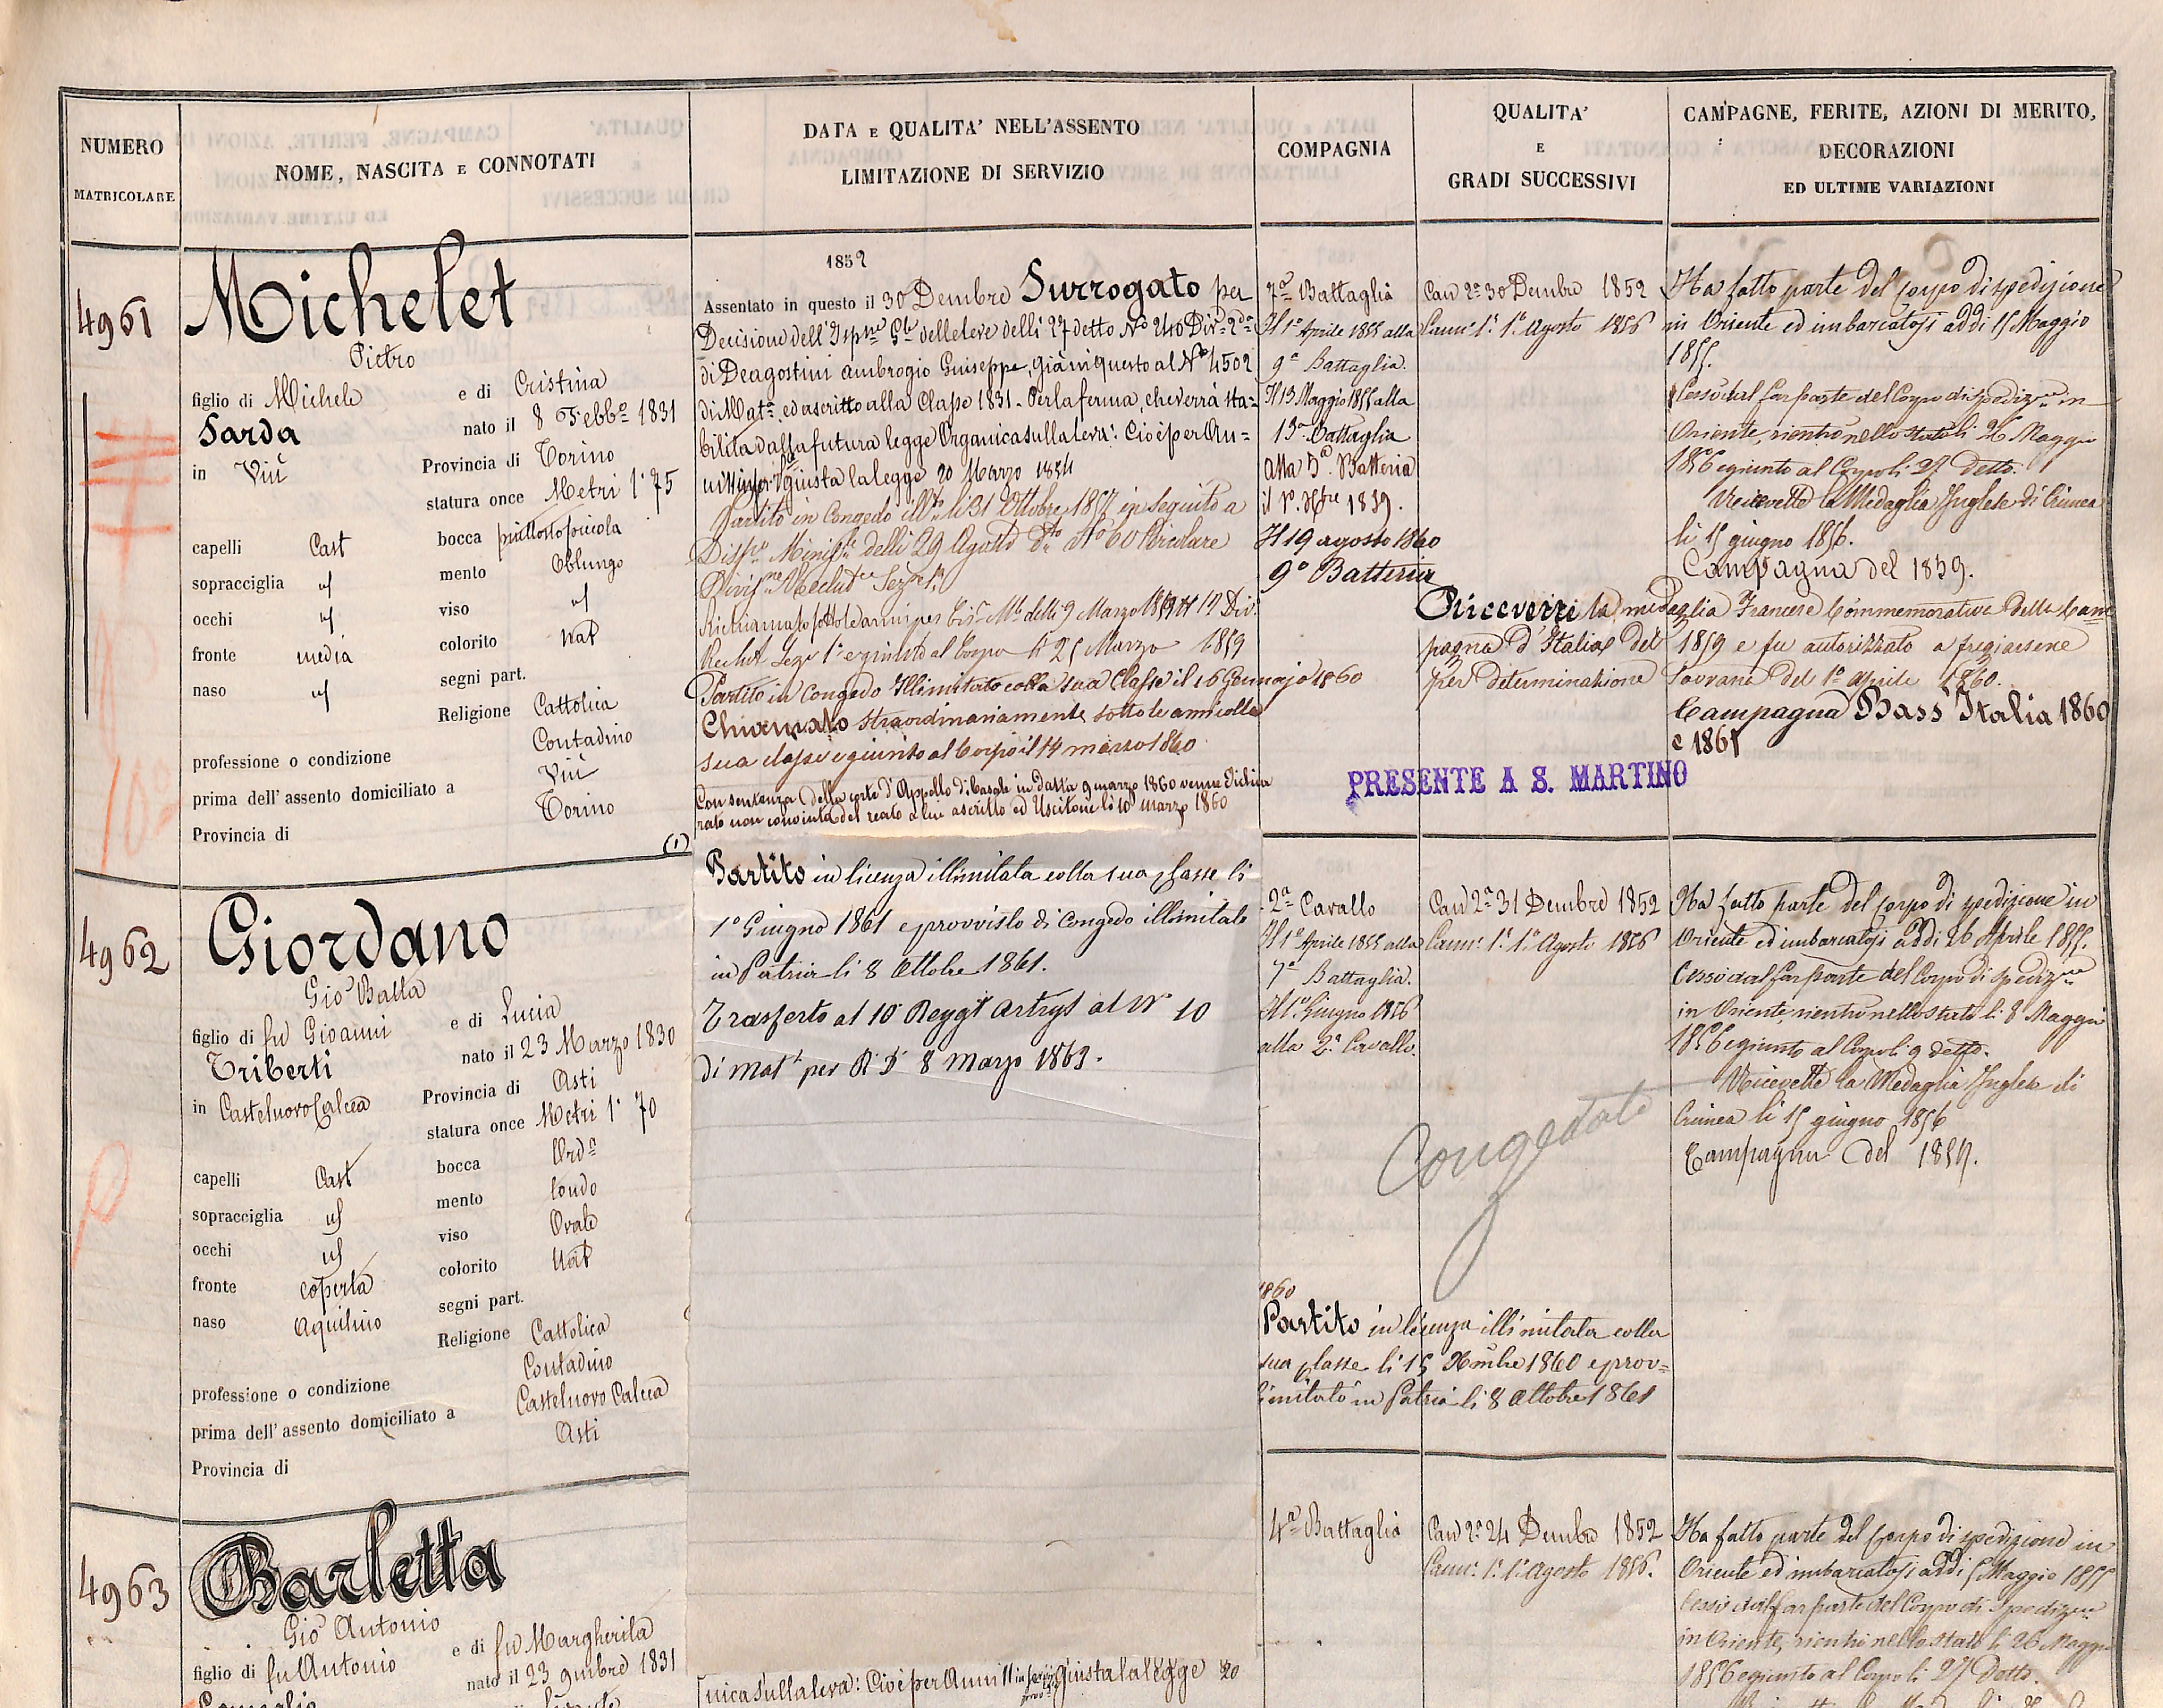 NUMERO
MATRICOLARE
NOME, NASCITA E CONNOTATI
DATA E QUALITA' NELL'ASSENTO
LIMITAZIONE DI SERVIZIO
COMPAGNIA
QUALITA'
E
GRADI SUCCESSIVI
CAMPAGNE, FERITE, AZIONI DI MERITO,
DECORAZIONI
ED ULTIME VARIAZIONI
4961
Michelet
Pietro
figlio di Michele e di Cristina
Sarda nato il 8 Febb° 1831
in Viù Provincia di Torino
statura once Metri 1° 75
capelli Cast bocca piuttosto piccola
sopracciglia id mento Oblungo
occhi id viso id
fronte media colorito Nat
naso id segni part.
Religione Cattolica
professione o condizione Contadino
prima dell'assento domiciliato a Viù
Provincia di Torino
(1)
1852
Assentato in questo il 30 Dembre Surrogato per
Decisione dell' delle leve delli 27 detto N° 240
di Deagostini ambrogio Giuseppe, già in questo al N° 4502
di Mat° ed ascritto alla Classe 1831 - Per la ferma, che verrà sta-
bilita dalla futura legge Organica sulla leva: Cioè per An-
ni giusta la legge 20 Marzo 1854
Partito in Congedo li 31 Ottobre 1857 in seguito a
delli 29 Agosto N° 60 Circolare
Richiamato sotto le armi per delli 9 Marzo 1859
e giunto al Corpo li 25 Marzo 1859
Partito in Congedo Illimitato colla sua Classe il 16 Gennajo 1860
Chiamato straordinariamente sotto le armi colla
sua classe e giunto al Corpo il 14 marzo 1860
Con sentenza della corte d'Appello di Casale in data 9 marzo 1860 venne dichia
rato non convinto del reato a lui ascritto ed Uscitone li 10 marzo 1860
Partito in licenza illimitata colla sua classe li
1° Giugno 1861 e provvisto di Congedo illimitato
in Patria li 8 Ottobre 1861.
Trasferto al 10 Reggt Artryt al N° 10
di mat° per R. D. 8 Marzo 1863.
7a Battaglia
Il 1° Aprile 1855 alla
9a Battaglia.
Il 13 Maggio 1855 alla
13a Battaglia
alla 5a Batteria
il 1° Xbre 1859.
Il 19 agosto 1860
9° Batteria
Can 2a 30 Dembre 1852
Cann: 1a 1° Agosto 1856
Ha fatto parte del Corpo di spedizione
in Oriente ed imbarcatosi addi 15 Maggio
1855.
Cessò dal far parte del Corpo di spedizne in
Oriente, rientrò nello stato li 26 Maggio
1856 e giunto al Corpo li 27 detto.
Ricevette la Medaglia Inglese di Crimea
li 15 giugno 1856.
Campagna del 1859.
Ricevette la medaglia Francese Commemorativa della Cam
pagna d'Italia del 1859 e fu autorizzato a fregiarsene
per determinazione Sovrana del 1° aprile 1860.
Campagna Bass' Italia 1860
e 1861
PRESENTE A S. MARTINO
4962
Giordano
Gio Batta
figlio di fu Gioanni e di Lucia
Triberti nato il 23 Marzo 1830
in Castelnovo Calcea Provincia di Asti
statura once Metri 1° 70
capelli Cast bocca Orda
sopracciglia id mento tondo
occhi id viso Ovale
fronte coperta colorito Nat
naso Aquilino segni part.
Religione Cattolica
professione o condizione Contadino
prima dell'assento domiciliato a Castelnovo Calcea
Provincia di Asti
2a Cavallo
Il 1° Aprile 1855 alla
7a Battaglia.
Il 1° Giugno 1856
alla 2a Cavallo.
Can 2a 31 Dembre 1852
Cann: 1a 1° Agosto 1856
Ha fatto parte del Corpo di spedizione in
Oriente ed imbarcatosi addi 26 Aprile 1855.
Cessò dal far parte del Corpo di spedizne
in Oriente, rientrò nello stato li 8 Maggio
1856 e giunto al Corpo li 9 detto.
Ricevette la Medaglia Inglese di
Crimea li 15 giugno 1856
Campagna del 1859.
Congedato
1860
Partito in licenza illimitata colla
sua classe li 15 Xmbre 1860 e prov=
limitato in Patria li 8 Ottobre 1861
4963
Barletta
Gio Antonio
figlio di fu Antonio e di fu Margherita
nato il 23 9mbre 1831
nica sulla leva: Cioè per Anni 11 giusta la legge 20
4a Battaglia
Can 2a 24 Dembre 1852
Cann: 1a 1° Agosto 1856.
Ha fatto parte del Corpo di spedizione in
Oriente ed imbarcatosi addi 5 Maggio 1855
Cessò dal far parte del Corpo di Spedizne
in Oriente, rientrò nello stato li 26 Maggio
1856 e giunto al Corpo li 27 Detto.